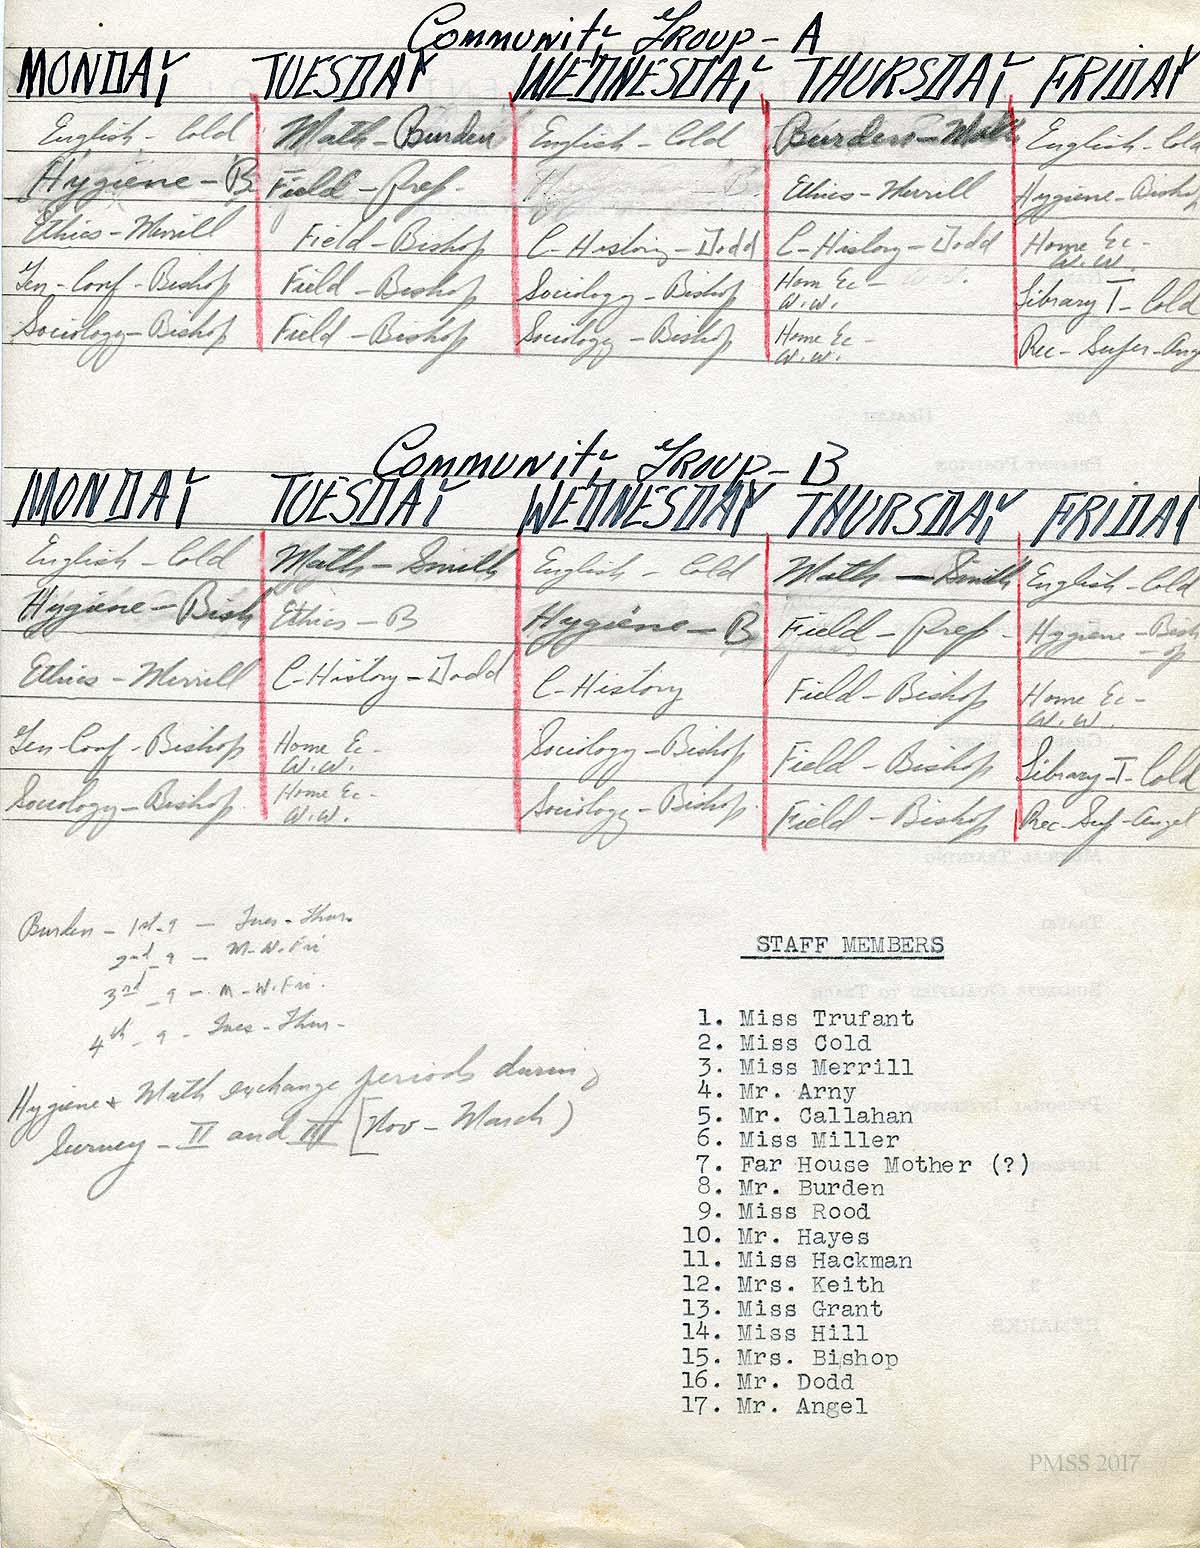 Community Group - A
MONDAY TUESDAY WEDNESDAY THURSDAY FRIDAY
English - Cold Math - Burden English - Cold Burden - Math English - Cold
Hygiene - B Field - Prep. Hygiene - B Ethics - Merrill Hygiene - Bishop
Ethics - Merrill Field - Bishop C - History - Dodd C - History - Dodd Home Ec -
W.W.
Gen - Conf - Bishop Field - Bishop Sociology - Bishop Home Ec - Library T - Cold
W.W.
Sociology - Bishop Field - Bishop Sociology - Bishop Home Ec - Rec - Super - Ang
W.W.
Community Group - B
MONDAY TUESDAY WEDNESDAY THURSDAY FRIDAY
English - Cold Math - Smith English - Cold Math - Smith English - Cold
Hygiene - Bish Ethics - B Hygiene - B Field - Prep - Hygiene - Bish
op
Ethics - Merrill C - History - Dodd C - History Field - Bishop Home Ec -
W.W.
Gen - Conf - Bishop Home Ec - Sociology - Bishop Field - Bishop Library - T - Cold
W.W.
Sociology - Bishop Home Ec - Sociology - Bishop Field - Bishop Rec - Sup - Angel
W.W.
Burden - 1st - 9 - Tues - Thur.
2nd - 9 - M - W. Fri
3rd - 9 - M - W. Fri.
4th - 9 - Tues - Thur -
Hygiene & Math exchange periods during
Survey - II and III [Nov - March)
STAFF MEMBERS
1. Miss Trufant
2. Miss Cold
3. Miss Merrill
4. Mr. Arny
5. Mr. Callahan
6. Miss Miller
7. Far House Mother (?)
8. Mr. Burden
9. Miss Rood
10. Mr. Hayes
11. Miss Hackman
12. Mrs. Keith
13. Miss Grant
14. Miss Hill
15. Mrs. Bishop
16. Mr. Dodd
17. Mr. Angel
PMSS 2017